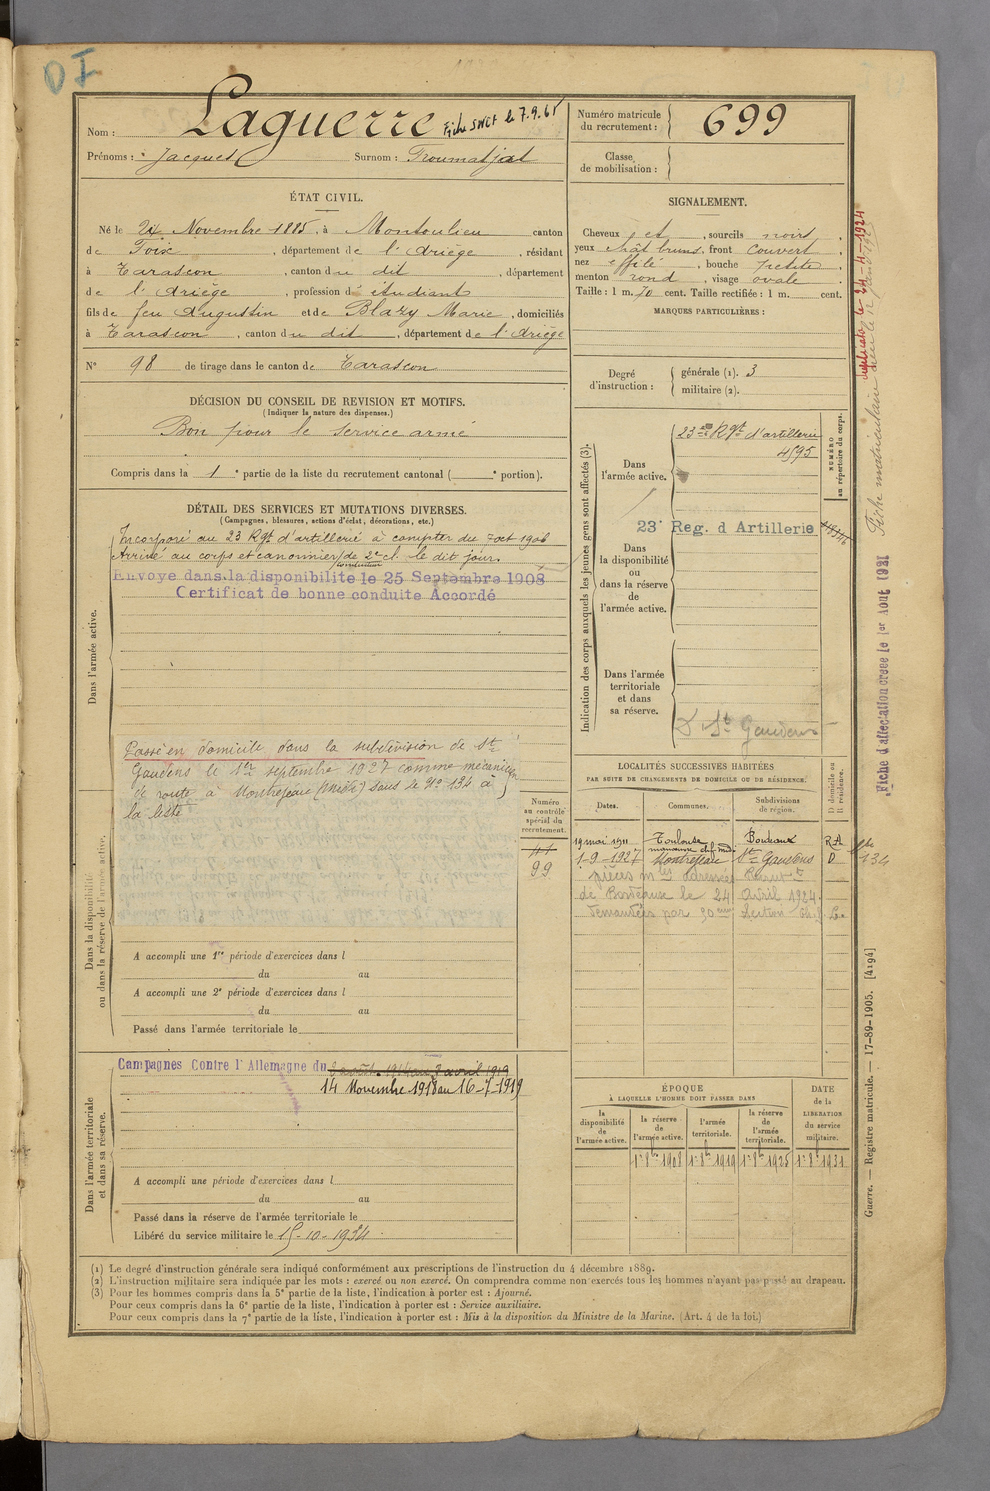 OI
Nom : Laguerre Fiche SNCF le 7.9.61
Prénoms : Jacques Surnom : Troumatjat
ÉTAT CIVIL.
Né le 24 Novembre 1885, à Montoulieu canton
de Foix, département de l'Ariège, résidant
à Tarascon, canton du dit, département
de l'Ariège, profession d'étudiant
fils de feu Augustin et de Blazy Marie, domiciliés
à Tarascon, canton du dit, département de l'Ariège
N° 98 de tirage dans le canton de Tarascon
DÉCISION DU CONSEIL DE REVISION ET MOTIFS.
(Indiquer la nature des dispenses.)
Bon pour le service armé
Compris dans la 1e partie de la liste du recrutement cantonal ( e portion).
DÉTAIL DES SERVICES ET MUTATIONS DIVERSES.
(Campagnes, blessures, actions d'éclat, décorations, etc.)
Dans l'armée active.
Incorporé au 23 Rgt d'artillerie à compter du 7 oct 1906
Arrivé au corps et canonnier conducteur de 2e cl. le dit jour.
Envoyé dans la disponibilité le 25 Septembre 1908
Certificat de bonne conduite Accordé
Dans la disponibilité
ou dans la réserve de l'armée active.
Passé en domicile dans la subdivision de St
Gaudens le 1er septembre 1927 comme mécanicien
de route à Montrejeau (Midi) sous le N° 134 à
la liste
A accompli une 1re période d'exercices dans l
du au
A accompli une 2e période d'exercices dans l
du au
Passé dans l'armée territoriale le
Dans l'armée territoriale
et dans sa réserve.
Campagnes Contre l'Allemagne du 3 août 1914 au 3 avril 1919
14 Novembre 1918 au 16-7-1919
A accompli une période d'exercices dans l
du au
Passé dans la réserve de l'armée territoriale le
Libéré du service militaire le 15-10-1934
Numéro
au contrôle
spécial du
recrutement.
99
Numéro matricule
du recrutement : 699
Classe
de mobilisation :
SIGNALEMENT.
Cheveux et, sourcils noirs,
yeux chât bruns, front couvert,
nez effilé, bouche petite,
menton rond, visage ovale.
Taille : 1 m. 70 cent. Taille rectifiée : 1 m. cent.
MARQUES PARTICULIÈRES :
Degré
d'instruction :
générale (1). 3
militaire (2).
Indication des corps auxquels les jeunes gens sont affectés (3).
NUMÉRO
au répertoire du corps.
Dans
l'armée active.
23me Rgt d'artillerie
4595
23e Reg. d Artillerie
Dans
la disponibilité
ou
dans la réserve
de
l'armée active.
Dans l'armée
territoriale
et dans
sa réserve.
D. St Gaudens
LOCALITÉS SUCCESSIVES HABITÉES
PAR SUITE DE CHANGEMENTS DE DOMICILE OU DE RÉSIDENCE.
D domicile ou
R résidence.
Dates. Communes. Subdivisions
de région.
19 mai 1911 Toulouse Bordeaux R.A.
1-9-1927 Montrejeau St Gaudens D. 134
pièces mles adressées Recrut
de Bordeaux le 24 Avril 1924
demandées par
ÉPOQUE
À LAQUELLE L'HOMME DOIT PASSER DANS
DATE
de la
LIBÉRATION
du service
militaire.
la
disponibilité
de
l'armée active.
la réserve
de
l'armée active.
l'armée
territoriale.
la réserve
de
l'armée
territoriale.
1er 8bre 1908 1er 8bre 1919 1er 8bre 1925 1er 8bre 1931
duplicata le 24-4-1924
Fiche matriculaire
Fiche d'affectation créée le 1er Août 1931
Guerre. — Registre matricule. — 17-89-1905. [4194]
(1) Le degré d'instruction générale sera indiqué conformément aux prescriptions de l'instruction du 4 décembre 1889.
(2) L'instruction militaire sera indiquée par les mots : exercé ou non exercé. On comprendra comme non exercés tous les hommes n'ayant pas passé au drapeau.
(3) Pour les hommes compris dans la 5e partie de la liste, l'indication à porter est : Ajourné.
Pour ceux compris dans la 6e partie de la liste, l'indication à porter est : Service auxiliaire.
Pour ceux compris dans la 7e partie de la liste, l'indication à porter est : Mis à la disposition du Ministre de la Marine. (Art. 4 de la loi.)